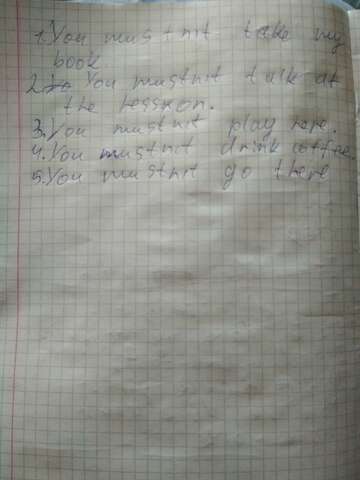 1. You mustnit take my
book
2. You mustnit talk at
the lesson.
3. You mustnit play here.
4. You mustnit drink coffee
5. You mustnit go there